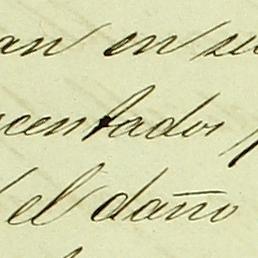 an en su
centados
el daño